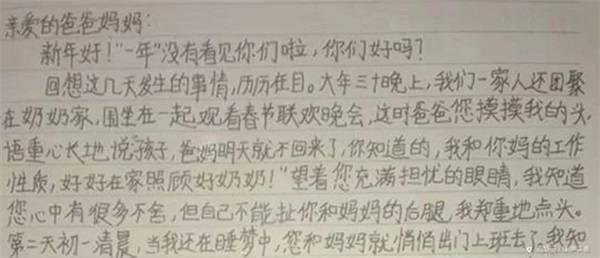 亲爱的爸爸妈妈：
新年好！"一年"没有看见你们啦，你们好吗？
回想这几天发生的事情，历历在目。大年三十晚上，我们一家人还团聚
在奶奶家，围坐在一起，观看春节联欢晚会，这时爸爸您摸摸我的头，
语重心长地说"孩子，爸妈明天就不回来了，你知道的，我和你妈的工作
性质，好好在家照顾好奶奶！"望着您充满担忧的眼睛，我知道
您心中有很多不舍，但自己不能扯你和妈妈的后腿，我郑重地点头。
第二天初一清晨，当我还在睡梦中，您和妈妈就悄悄出门上班去了，我知